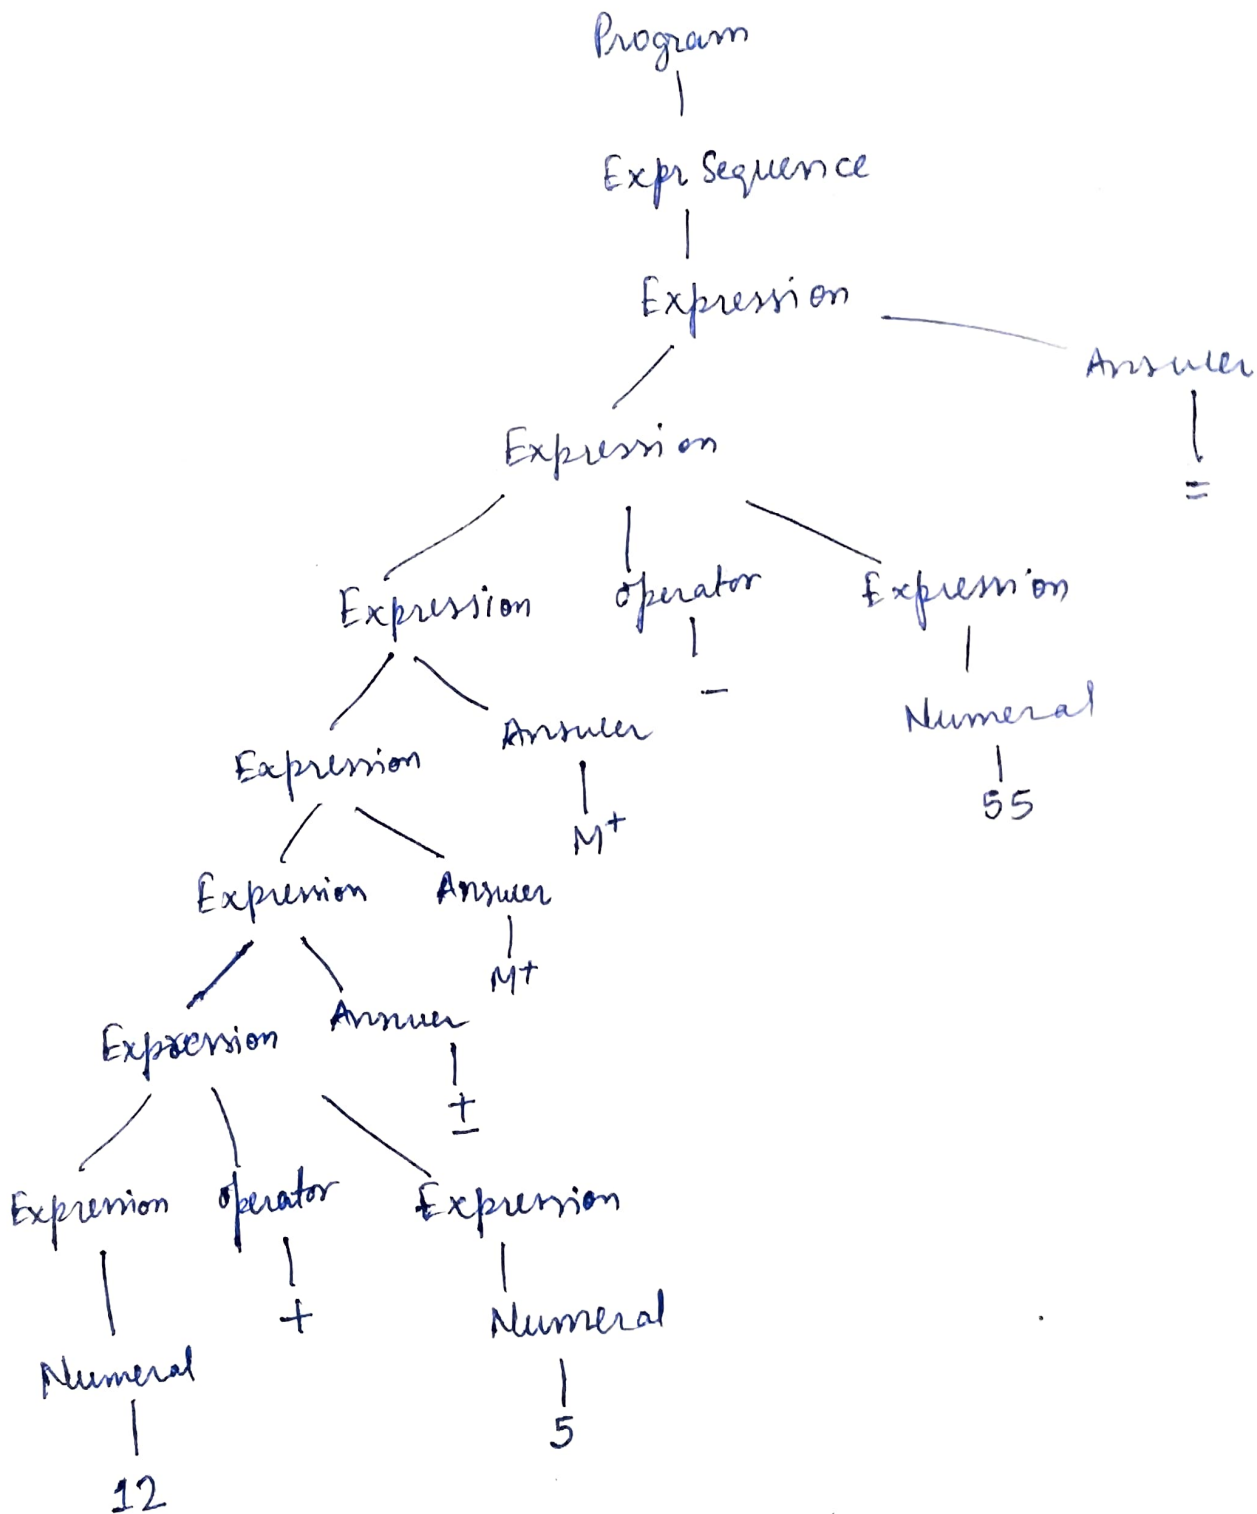 Program
Expr Sequence
Expression
Answer
Expression
=
Expression
operator
Expression
-
Numeral
Expression
Answer
55
M+
Expression
Answer
M+
Expression
Answer
±
Expression
operator
Expression
+
Numeral
Numeral
5
12